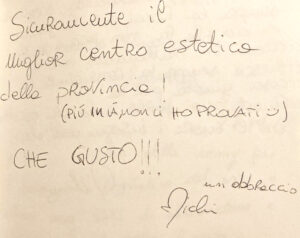 Sicuramente il
miglior centro estetico
della provincia!
(più in là non ci ho provati :)
CHE GUSTO!!!
un abbraccio